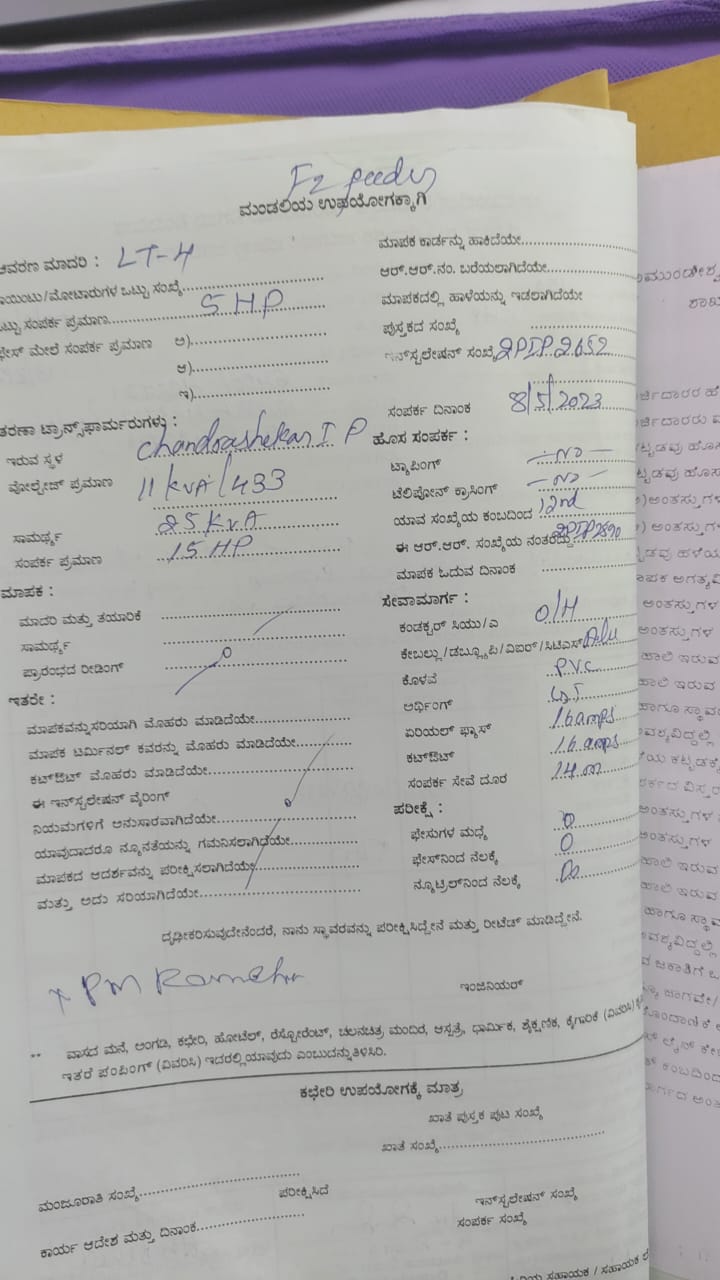 F2 feeder
ಮಂಡಲಿಯ ಉಪಯೋಗಕ್ಕಾಗಿ
ಆವರಣ ಮಾದರಿ : LT-4
ಪಾಯಿಂಟು/ಮೋಟಾರುಗಳ ಒಟ್ಟು ಸಂಖ್ಯೆ
ಒಟ್ಟು ಸಂಪರ್ಕ ಪ್ರಮಾಣ 5 HP
ಫೇಸ್ ಮೇಲೆ ಸಂಪರ್ಕ ಪ್ರಮಾಣ ಅ)
ಆ)
ಇ)
ವಿತರಣಾ ಟ್ರಾನ್ಸ್‌ಫಾರ್ಮರುಗಳು :
ಇರುವ ಸ್ಥಳ Chandrashekar I P
ವೋಲ್ಟೇಜ್ ಪ್ರಮಾಣ 11 kVA/433
ಸಾಮರ್ಥ್ಯ 25 KVA
ಸಂಪರ್ಕ ಪ್ರಮಾಣ 15 HP
ಮಾಪಕ :
ಮಾದರಿ ಮತ್ತು ತಯಾರಿಕೆ
ಸಾಮರ್ಥ್ಯ
ಪ್ರಾರಂಭದ ರೀಡಿಂಗ್
ಇತರೇ :
ಮಾಪಕವನ್ನು ಸರಿಯಾಗಿ ಮೊಹರು ಮಾಡಿದೆಯೇ
ಮಾಪಕ ಟರ್ಮಿನಲ್ ಕವರನ್ನು ಮೊಹರು ಮಾಡಿದೆಯೇ
ಕಟ್‌ಔಟ್ ಮೊಹರು ಮಾಡಿದೆಯೇ
ಈ ಇನ್‌ಸ್ಟಲೇಷನ್ ವೈರಿಂಗ್
ನಿಯಮಗಳಿಗೆ ಅನುಸಾರವಾಗಿದೆಯೇ
ಯಾವುದಾದರೂ ನ್ಯೂನತೆಯನ್ನು ಗಮನಿಸಲಾಗಿದೆಯೇ
ಮಾಪಕದ ಆದರ್ಶವನ್ನು ಪರೀಕ್ಷಿಸಲಾಗಿದೆಯೇ
ಮತ್ತು ಅದು ಸರಿಯಾಗಿದೆಯೇ
ಮಾಪಕ ಕಾರ್ಡನ್ನು ಹಾಕಿದೆಯೇ
ಆರ್.ಆರ್.ನಂ. ಬರೆಯಲಾಗಿದೆಯೇ
ಮಾಪಕದಲ್ಲಿ ಹಾಳೆಯನ್ನು ಇಡಲಾಗಿದೆಯೇ
ಪುಸ್ತಕದ ಸಂಖ್ಯೆ
ಇನ್‌ಸ್ಟಲೇಷನ್ ಸಂಖ್ಯೆ 2PIP2652
ಸಂಪರ್ಕ ದಿನಾಂಕ 8/5/2023
ಹೊಸ ಸಂಪರ್ಕ :
ಟ್ಯಾಪಿಂಗ್ - No -
ಟೆಲಿಫೋನ್ ಕ್ರಾಸಿಂಗ್ - No -
ಯಾವ ಸಂಖ್ಯೆಯ ಕಂಬದಿಂದ
ಈ ಆರ್.ಆರ್. ಸಂಖ್ಯೆಯ ನಂತರದ್ದು
ಮಾಪಕ ಓದುವ ದಿನಾಂಕ
ಸೇವಾಮಾರ್ಗ :
ಕಂಡಕ್ಟರ್ ಸಿಯು/ಎ O/H
ಕೇಬಲ್ಲು/ಡಬ್ಲ್ಯೂಪಿ/ವಿಐಆರ್/ಸಿಟಿಎಸ್ Alu
ಕೊಳವೆ PVC
ಅರ್ಥಿಂಗ್
ಏರಿಯಲ್ ಫ್ಯೂಸ್ 16 amps
ಕಟ್‌ಔಟ್ 16 amps
ಸಂಪರ್ಕ ಸೇವೆ ದೂರ 14 m
ಪರೀಕ್ಷೆ :
ಫೇಸುಗಳ ಮಧ್ಯೆ
ಫೇಸ್‌ನಿಂದ ನೆಲಕ್ಕೆ 0
ನ್ಯೂಟ್ರಲ್‌ನಿಂದ ನೆಲಕ್ಕೆ
ದೃಢೀಕರಿಸುವುದೇನೆಂದರೆ, ನಾನು ಸ್ಥಾವರವನ್ನು ಪರೀಕ್ಷಿಸಿದ್ದೇನೆ ಮತ್ತು ರೀಟೆಡ್ ಮಾಡಿದ್ದೇನೆ.
ಇಂಜಿನಿಯರ್
** ವಾಸದ ಮನೆ, ಅಂಗಡಿ, ಕಛೇರಿ, ಹೋಟೆಲ್, ರೆಸ್ಟೋರೆಂಟ್, ಚಲನಚಿತ್ರ ಮಂದಿರ, ಆಸ್ಪತ್ರೆ, ಧಾರ್ಮಿಕ, ಶೈಕ್ಷಣಿಕ, ಕೈಗಾರಿಕೆ (ವಿವರಿಸಿ)
ಇತರೆ ಪಂಪಿಂಗ್ (ವಿವರಿಸಿ) ಇದರಲ್ಲಿ ಯಾವುದು ಎಂಬುದನ್ನು ತಿಳಿಸಿರಿ.
ಕಛೇರಿ ಉಪಯೋಗಕ್ಕೆ ಮಾತ್ರ
ಖಾತೆ ಪುಸ್ತಕ ಪುಟ ಸಂಖ್ಯೆ
ಖಾತೆ ಸಂಖ್ಯೆ
ಮಂಜೂರಾತಿ ಸಂಖ್ಯೆ
ಪರೀಕ್ಷಿಸಿದೆ
ಇನ್‌ಸ್ಟಲೇಷನ್ ಸಂಖ್ಯೆ
ಕಾರ್ಯ ಆದೇಶ ಮತ್ತು ದಿನಾಂಕ
ಸಂಪರ್ಕ ಸಂಖ್ಯೆ